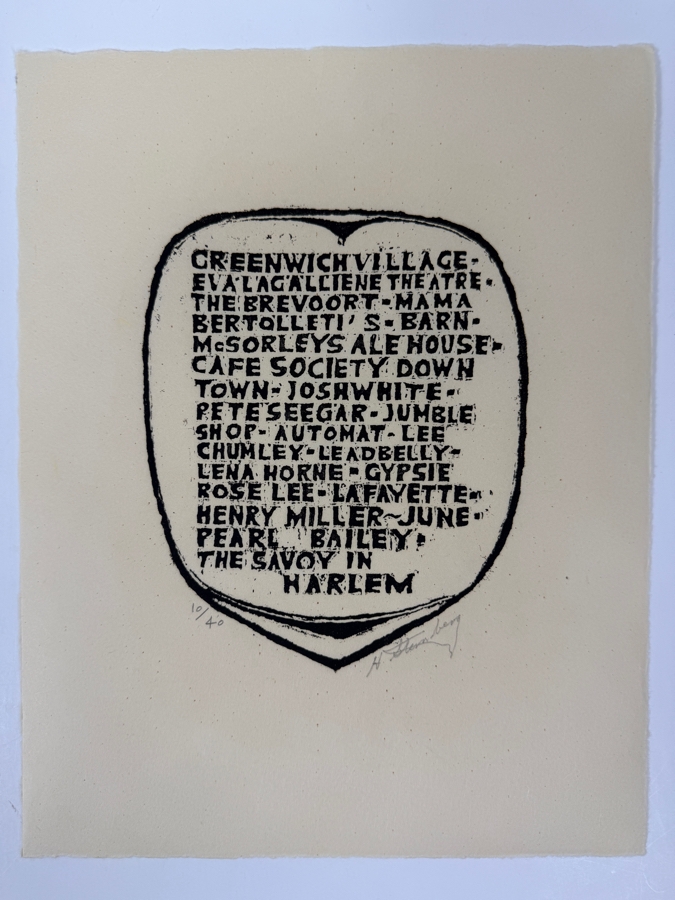 GREENWICH VILLAGE-
EVA LAGALLIENE THEATRE-
THE BREVOORT-MAMA
BERTOLLETI'S-BARN-
McSORLEYS ALE HOUSE-
CAFE SOCIETY DOWN
TOWN-JOSHWHITE-
PETE SEEGAR-JUMBLE
SHOP-AUTOMAT-LEE
CHUMLEY-LEADBELLY-
LENA HORNE-GYPSIE
ROSE LEE-LAFAYETTE-
HENRY MILLER~JUNE-
PEARL BAILEY-
THE SAVOY IN
HARLEM
10/40
H. Sternberg